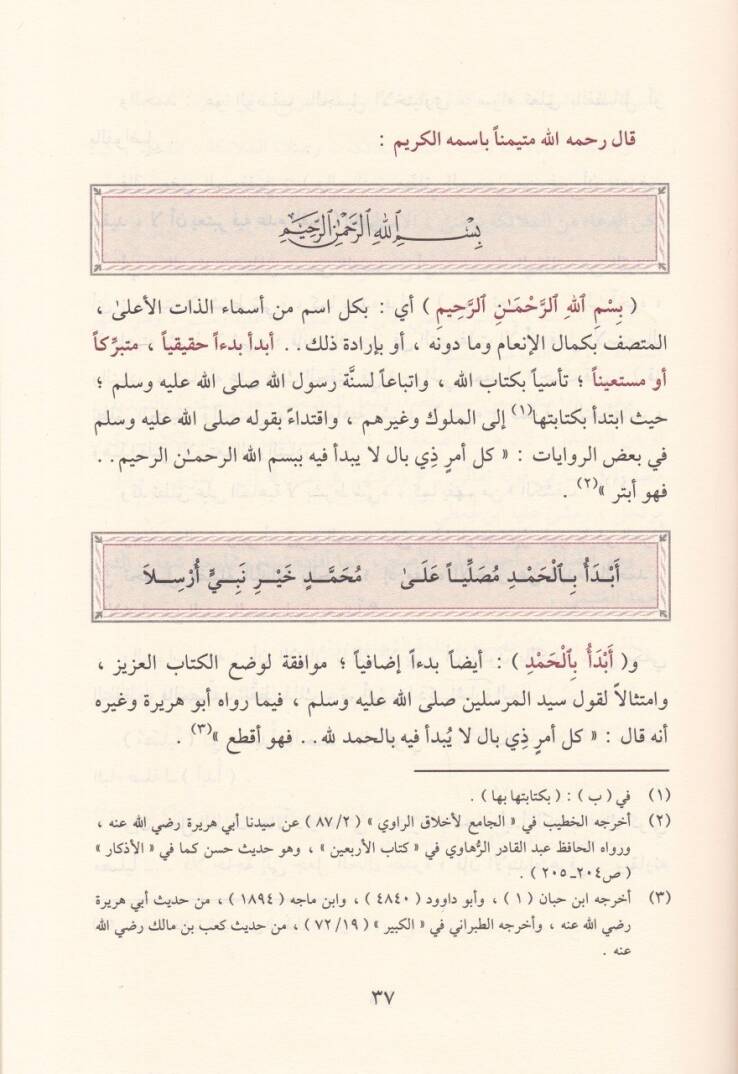 قال رحمه الله متيمناً باسمه الكريم :
بِسْمِ ٱللهِ ٱلرَّحْمَٰنِ ٱلرَّحِيمِ
( بِسْمِ ٱللهِ ٱلرَّحْمَـٰنِ ٱلرَّحِيمِ ) أي : بكل اسم من أسماء الذات الأعلىٰ ،
المتصف بكمال الإنعام وما دونه ، أو بإرادة ذلك .. أبدأ بدءاً حقيقياً ، متبرِّكاً
أو مستعيناً ؛ تأسياً بكتاب الله ، واتباعاً لسنَّة رسول الله صلى الله عليه وسلم ؛
حيث ابتدأ بكتابتها(١) إلى الملوك وغيرهم ، واقتداءً بقوله صلى الله عليه وسلم
في بعض الروايات : « كل أمرٍ ذِي بال لا يبدأ فيه ببسم الله الرحمـٰن الرحيم ..
فهو أبتر »(٢) .
أَبْدَأُ بِـٱلْحَمْدِ مُصَلِّياً عَلَىٰ مُحَمَّدٍ خَيْرِ نَبِيٍّ أُرْسِلاَ
و( أَبْدَأُ بِٱلْحَمْدِ ) : أيضاً بدءاً إضافياً ؛ موافقة لوضع الكتاب العزيز ،
وامتثالاً لقول سيد المرسلين صلى الله عليه وسلم ، فيما رواه أبو هريرة وغيره
أنه قال : « كل أمرٍ ذِي بال لا يُبدأ فيه بالحمد لله .. فهو أقطع »(٣) .
(١) في ( ب ) : ( بكتابتها بها ) .
(٢) أخرجه الخطيب في « الجامع لأخلاق الراوي » ( ٢/ ٨٧ ) عن سيدنا أبي هريرة رضي الله عنه ،
ورواه الحافظ عبد القادر الرُّهاوي في « كتاب الأربعين » ، وهو حديث حسن كما في « الأذكار »
( ص٢٠٤ـ٢٠٥ ) .
(٣) أخرجه ابن حبان ( ١ ) ، وأبو داوود ( ٤٨٤٠ ) ، وابن ماجه ( ١٨٩٤ ) ، من حديث أبي هريرة
رضي الله عنه ، وأخرجه الطبراني في « الكبير » ( ١٩/ ٧٢ ) ، من حديث كعب بن مالك رضي الله
عنه .
٣٧